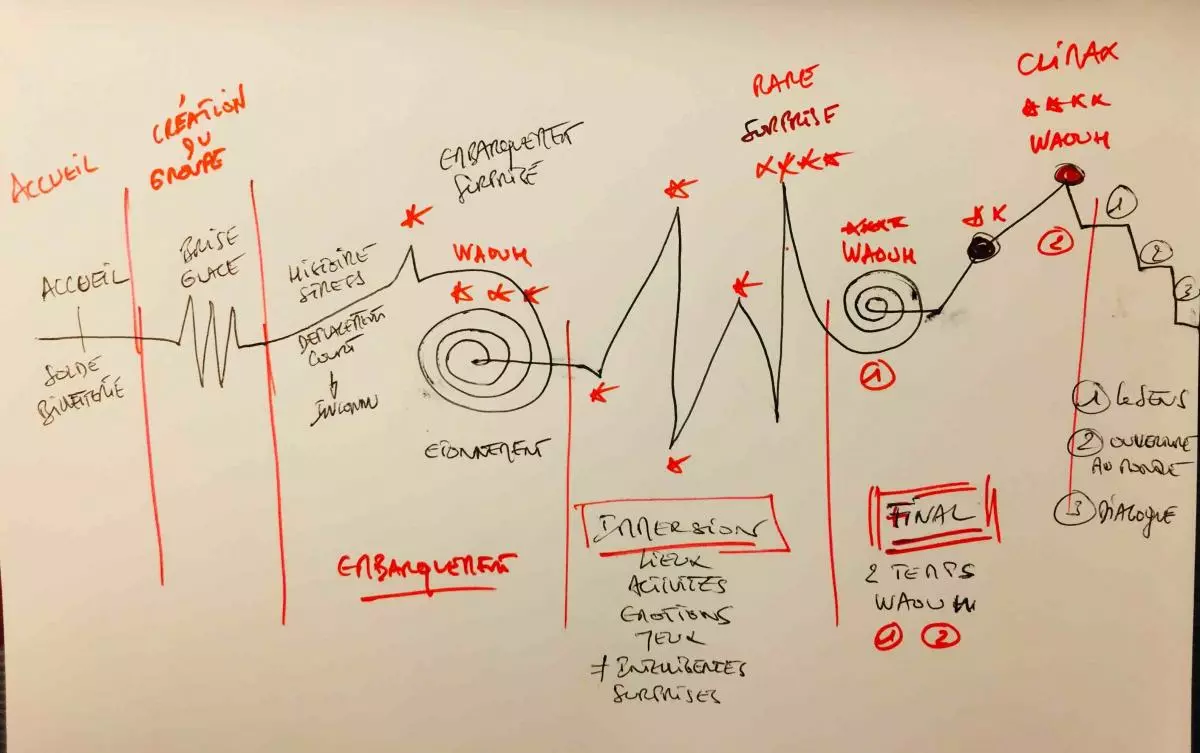 ACCUEIL
ACCUEIL
SOLDE
BILLETTERIE
CRÉATION
DU
GROUPE
BRISE
GLACE
HISTOIRE
STRESS
DEPLACEMENT
COURT
INCONNU
EMBARQUEMENT
SURPRISE
WAOUH
ETONNEMENT
EMBARQUEMENT
RARE
SURPRISE
IMMERSION
LIEUX
ACTIVITÉS
EMOTIONS
JEUX
≠ INTELLIGENTES
SURPRISES
WAOUH
1
FINAL
2 TEMPS
WAOUH
1 2
CLIMAX
WAOUH
2
1
2
3
1 LE SENS
2 OUVERTURE
AU MONDE
3 DIALOGUE